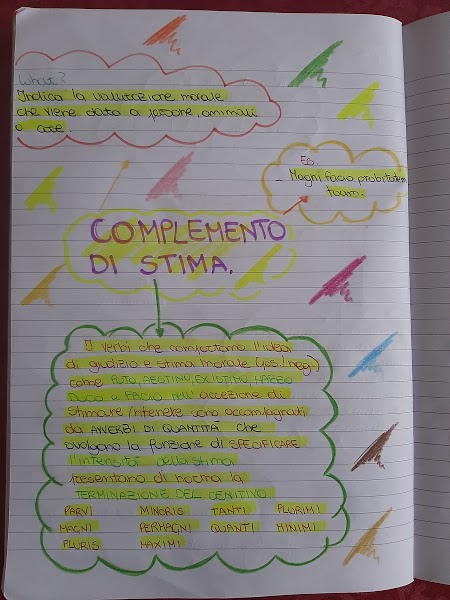 What?
Indica la valutazione morale
che viene data a persone, animali
o cose.
Es.
- Magni facio probitatem
tuam.
COMPLEMENTO
DI STIMA.
I verbi che comportano l'idea
di giudizio e stima morale (pos./neg.)
come PUTO, AESTIMO, EXISTIMO, HABEO
DUCO e FACIO nell'accezione di
stimare/ritenere sono accompagnati
da AVVERBI DI QUANTITÀ che
svolgono la funzione di SPECIFICARE
l'intensità della stima
presentano di norma la
TERMINAZIONE DEL GENITIVO
PARVI MINORIS TANTI PLURIMI
MAGNI PERMAGNI QUANTI MINIMI
PLURIS MAXIMI